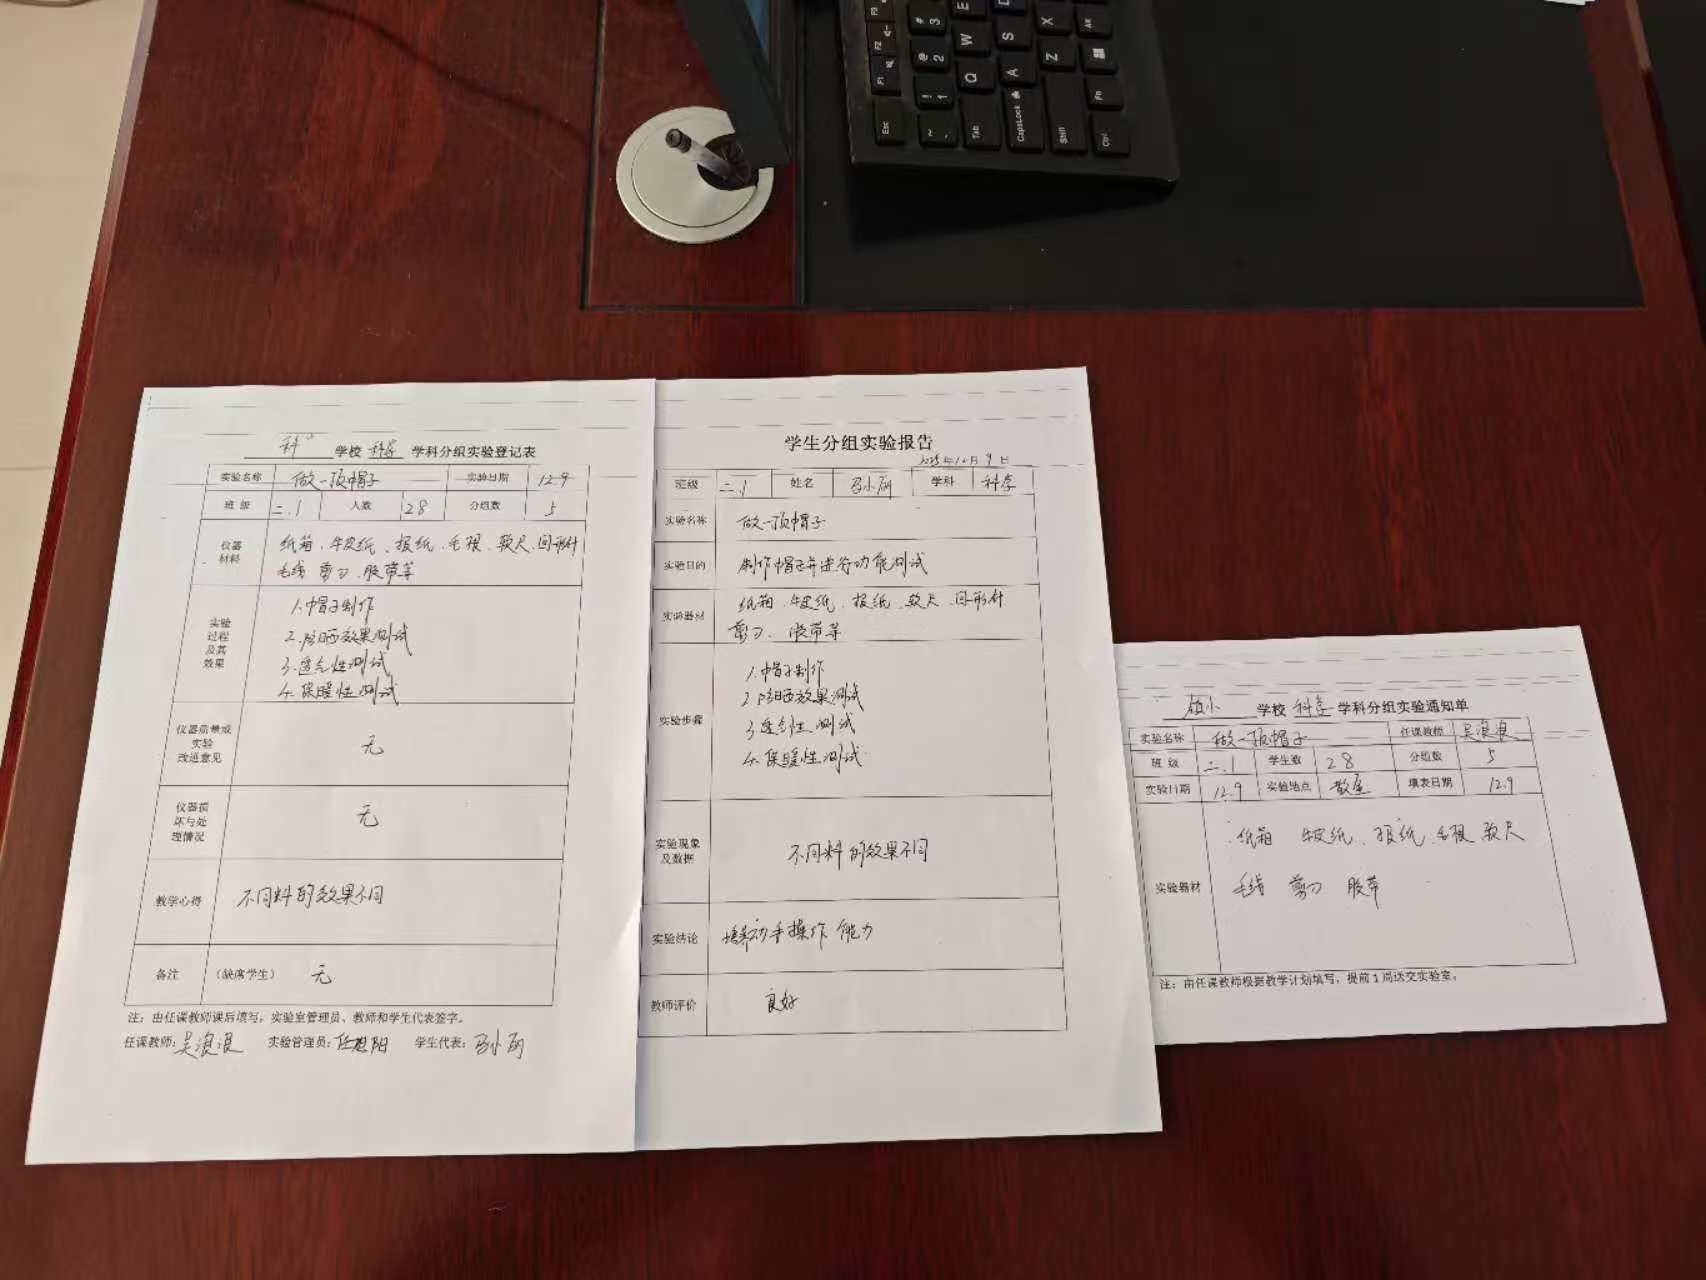 学校 科学 学科分组实验登记表
实验名称 做一顶帽子 实验日期 12.9
班 级 二.1 人数 28 分组数 5
仪器材料 纸箱、牛皮纸、报纸、毛根、软尺、回形针
毛线 剪刀、胶带等
实验过程及其效果
1.帽子制作
2.防晒效果测试
3.透气性测试
4.保暖性测试
仪器质量或实验改进意见 无
仪器损坏与处理情况 无
教学心得 不同料的效果不同
备注 (缺席学生) 无
注：由任课教师课后填写，实验室管理员、教师和学生代表签字。
任课教师：吴浪浪 实验管理员： 学生代表：
学生分组实验报告
2025年12月9日
班级 二.1 姓名 学科 科学
实验名称 做一顶帽子
实验目的 制作帽子并进行功能测试
实验器材 纸箱、牛皮纸、报纸、软尺、回形针
剪刀、胶带等
实验步骤
1.帽子制作
2.防晒效果测试
3.透气性测试
4.保暖性测试
实验现象及数据 不同料的效果不同
实验结论 培养动手操作能力
教师评价 良好
镇小 学校 科学 学科分组实验通知单
实验名称 做一顶帽子 任课教师 吴浪浪
班 级 二.1 学生数 28 分组数 5
实验日期 12.9 实验地点 教室 填表日期 12.9
实验器材 纸箱 牛皮纸、报纸、毛根、软尺
毛线 剪刀 胶带
注：由任课教师根据教学计划填写，提前1周送交实验室。
Esc
F1
F2
F3
~
!
1
@
2
#
3
Tab
Q
W
E
CapsLock
A
S
D
Shift
Z
X
Ctrl
Fn
Alt